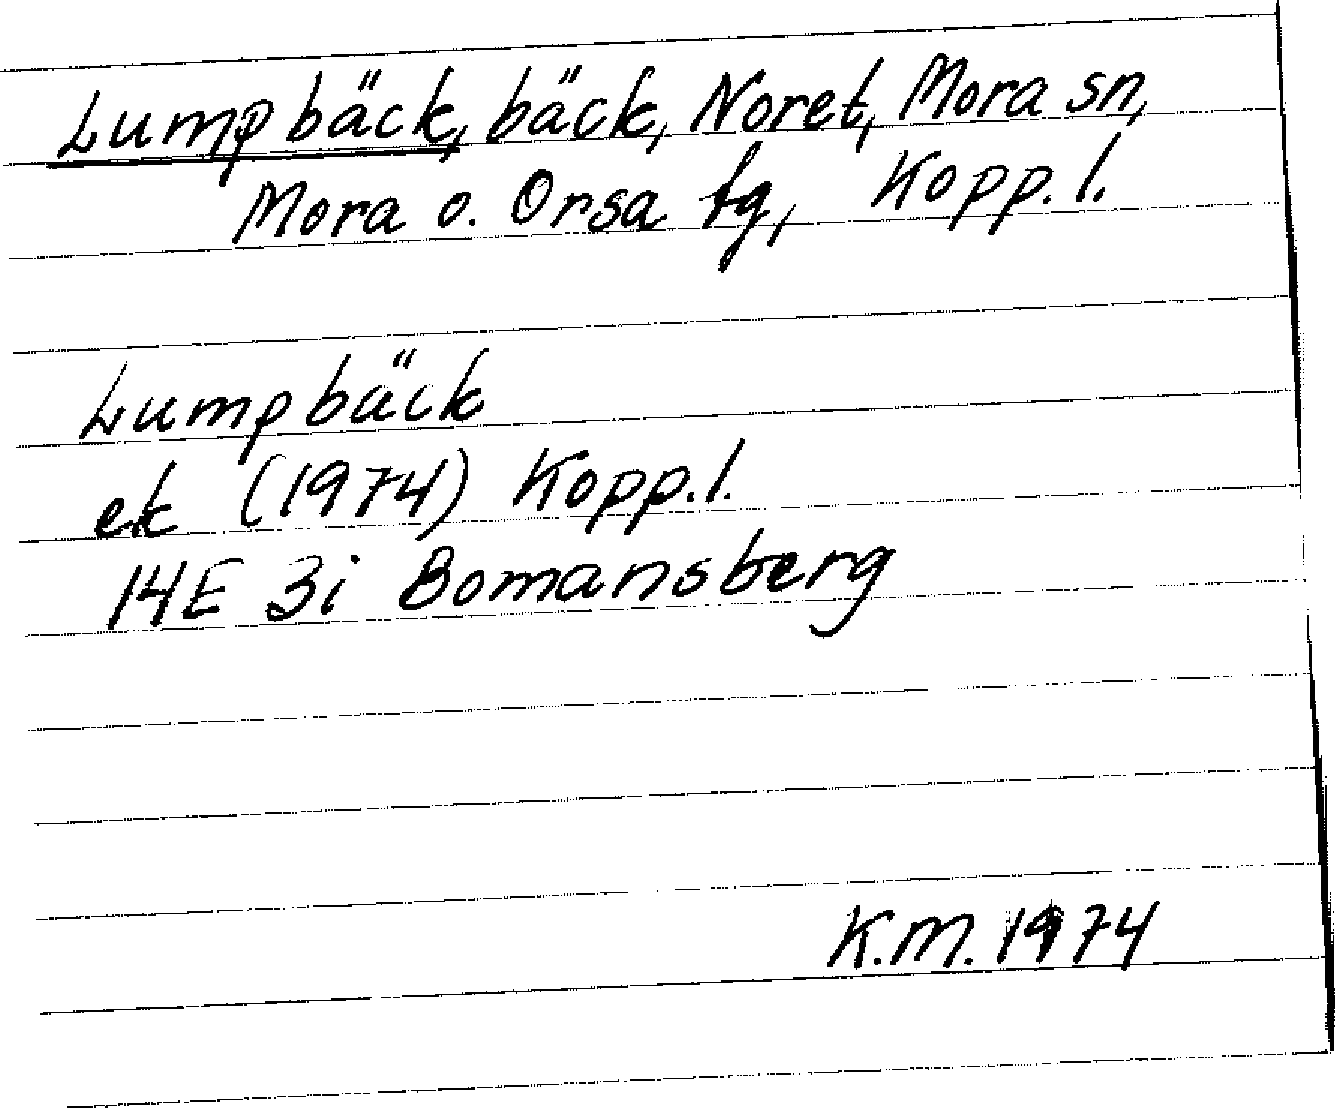 Lumpbäck, bäck, Noret, Mora sn,
Mora o. Orsa tg, Kopp. l.
Lumpbäck
ek (1974) Kopp. l.
14E 3i Bomansberg
K.M. 1974